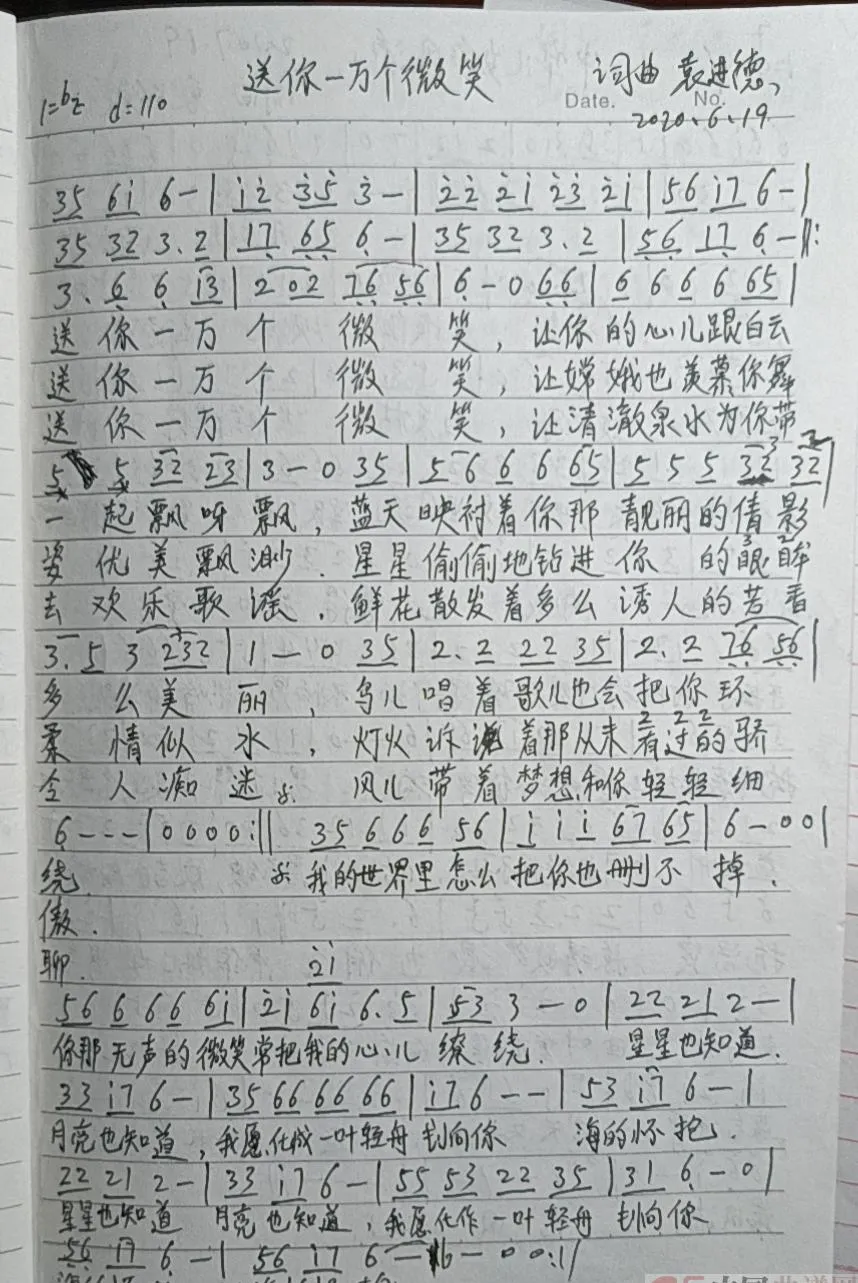 送你一万个微笑 词曲 袁进德、
Date. No.
1=bE d=110 2020.6.19
35 61 6 - | 12 35 3 - | 22 21 23 21 | 56 17 6 - |
35 32 3. 2 | 17 65 6 - | 35 32 3. 2 | 56 17 6 - ||:
3. 6 6 13 | 2 02 76 56 | 6 - 0 66 | 6 6 6 6 65 |
送你一万个 微 笑,让你的心儿跟白云
送你一万个 微 笑,让嫦娥也羡慕你舞
送你一万个 微 笑,让清澈泉水为你带
5 5 32 23 | 3 - 0 35 | 5 6 6 6 65 | 5 5 5 32 32 |
一起飘呀飘,蓝天映衬着你那靓丽的倩影
姿优美飘渺.星星偷偷地钻进你 的眼眸
去欢乐歌谣.鲜花散发着多么诱人的芳香
3. 5 3 232 | 1 - 0 35 | 2. 2 22 35 | 2. 2 76 56 |
多么美丽,鸟儿唱着歌儿也会把你环
柔情似水,灯火诉说着那从未有过的骄
令人痴迷 风儿带着梦想和你轻轻细
6 - - - | 0 0 0 0 :|| 35 6 6 6 56 | 1 1 1 67 65 | 6 - 0 0 |
绕. 我的世界里怎么把你也删不掉.
傲.
聊. 21
56 6 6 6 61 | 21 61 6. 5 | 53 3 - 0 | 22 21 2 - |
你那无声的微笑常把我的心儿缭绕. 星星也知道.
33 17 6 - | 35 66 66 66 | 17 6 - - | 53 17 6 - |
月亮也知道,我愿化成一叶轻舟划向你 海的怀抱.
22 21 2 - | 33 17 6 - | 55 53 22 35 | 31 6 - 0 |
星星也知道 月亮也知道,我愿化作一叶轻舟 划向你
56 17 6 - | 56 17 6 - | 6 - 0 0 :||